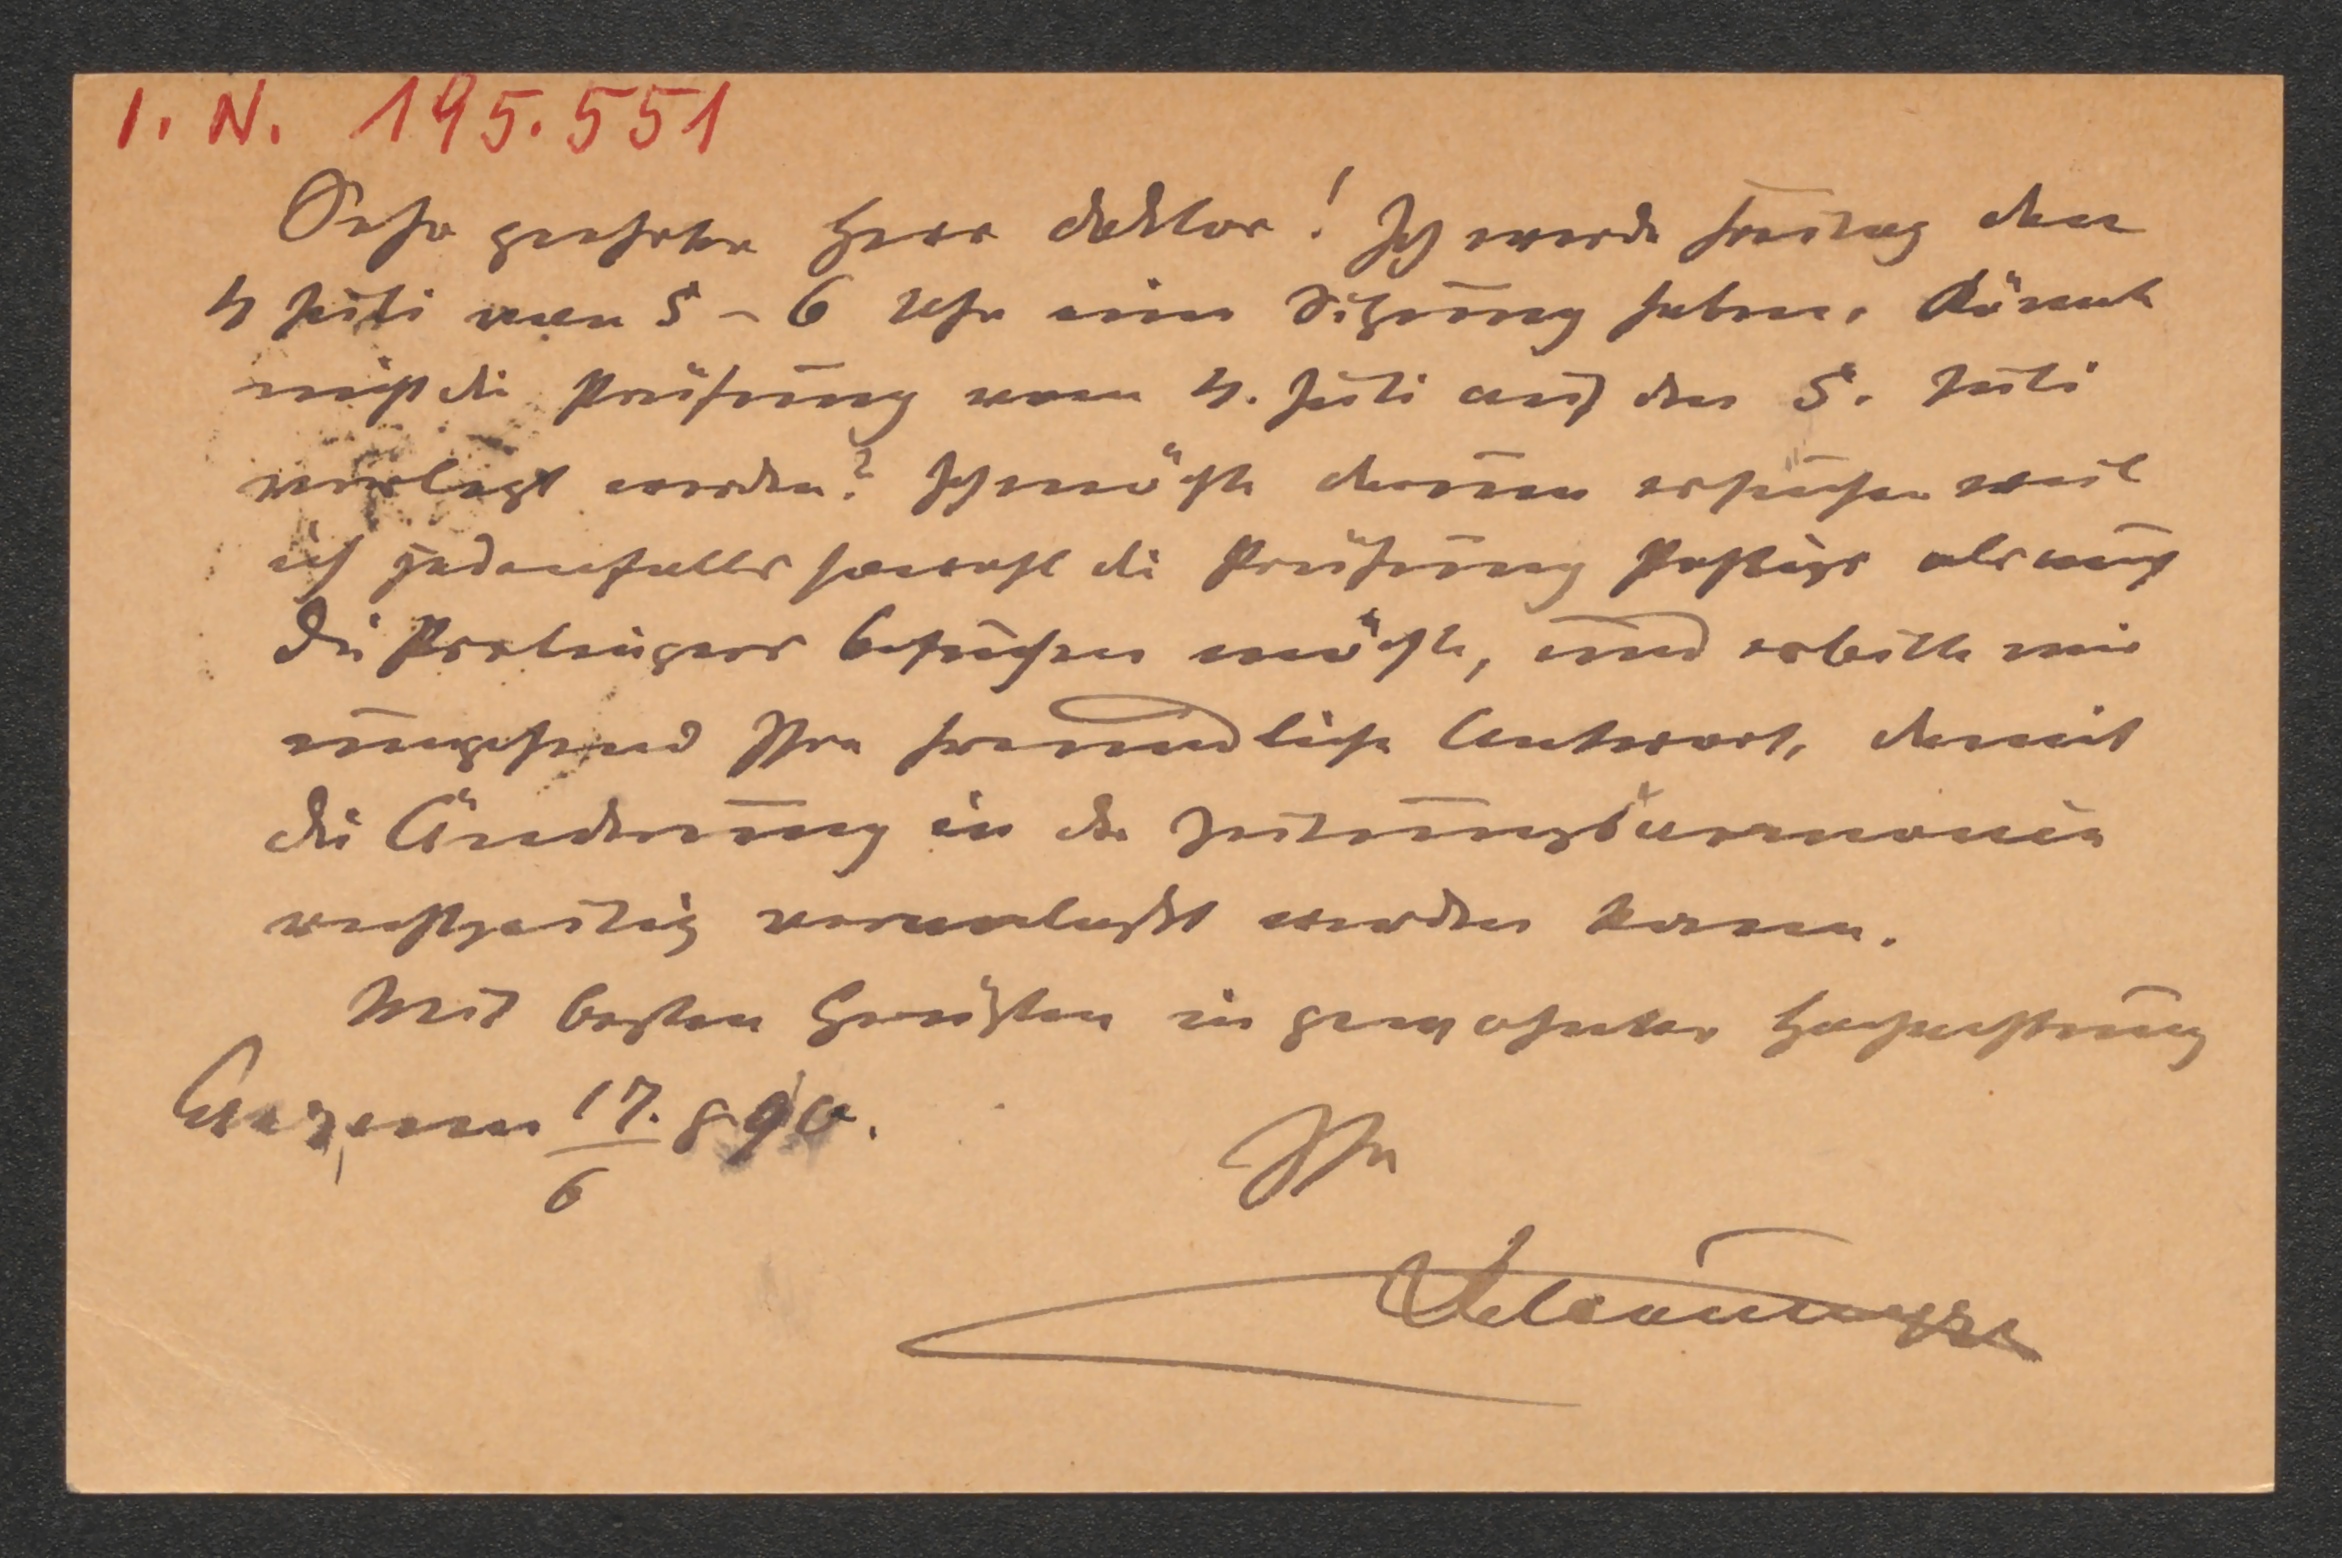 I. N. 195.551
Sehr geehrter Herr Doktor! Ich werde Freitag den
4 Juli von 5 - 6 Uhr eine Sitzung haben. Könnte
nicht die Prüfung vom 4. Juli auf den 5. Juli
verlegt werden? Ich möchte darum ersuchen weil
ich jedenfalls sowohl die Prüfung als auch
die besuchen möchte, und erbitte mir
umgehend Ihre freundliche Antwort, damit
die Änderung in der
rechtzeitig veranlaßt werden kann.
Mit besten Grüßen in gewohnter Hochachtung
17./6 890.
Ihr